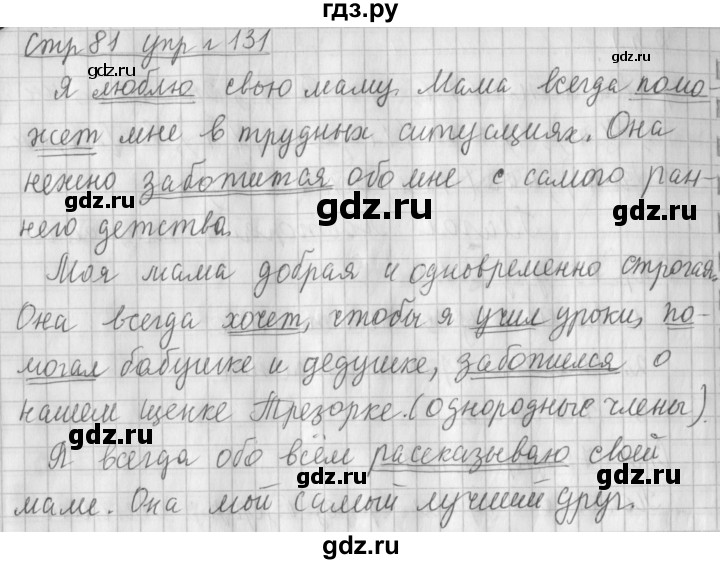 гдз.ру
Стр 81 упр г 131
Я люблю свою маму. Мама всегда помо-
жет мне в трудных ситуациях. Она
нежно заботится обо мне с самого ран-
него детства.
Моя мама добрая и одновременно строгая.
Она всегда хочет, чтобы я учил уроки, по-
могал бабушке и дедушке, заботился о
нашем щенке Трезорке. (однородные члены).
Я всегда обо всём рассказываю своей
маме. Она мой самый лучший друг.
gdz.ru
gdz.ru
gdz.ru
gdz.ru
gdz.ru
gdz.ru
gdz.ru
gdz.ru
gdz.ru
gdz.ru
гдз.ру